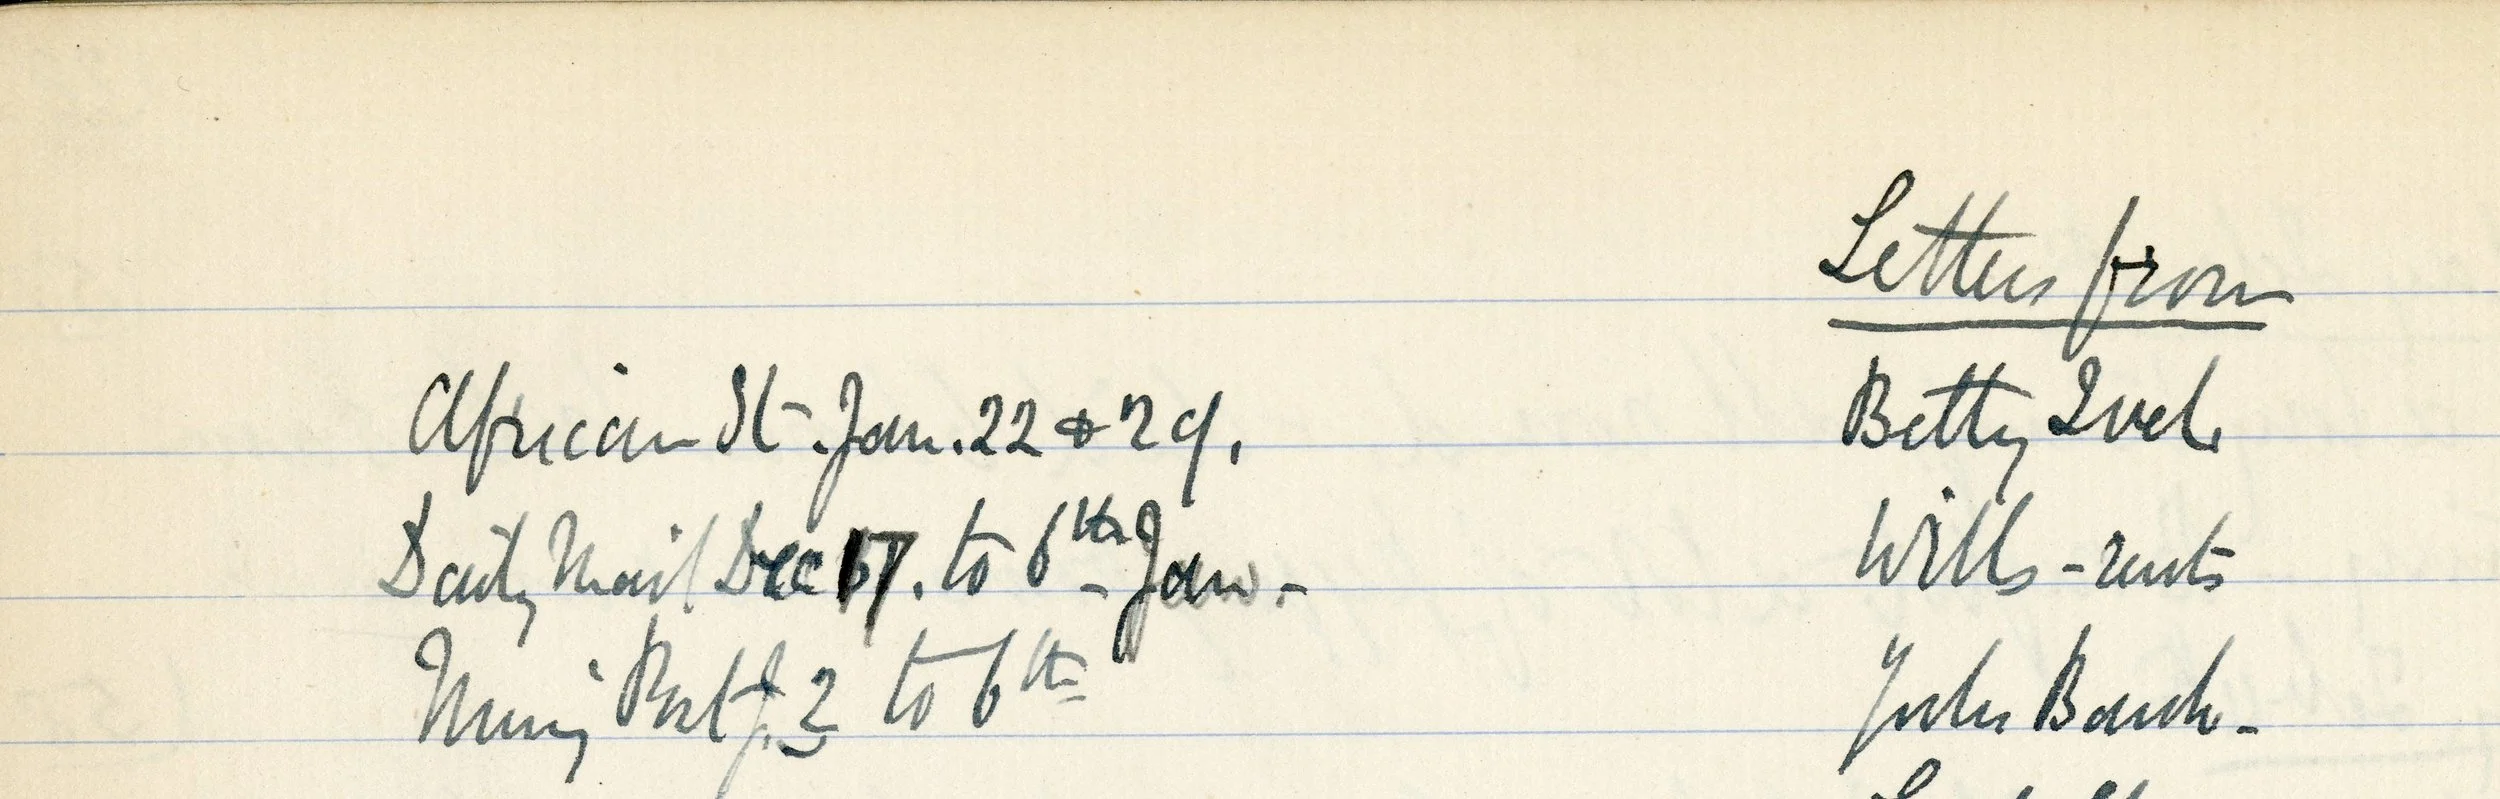 Letters from
African St. Jan. 22 & 29.
Betty
Daily Mail Dec 17. to 6th Jan. -
Wills -
Post J. 2 to 6th
John